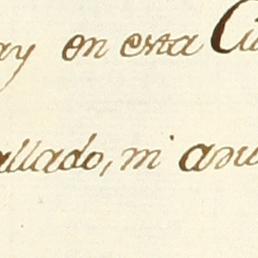 ay en esta Ciu
allado, ni adu